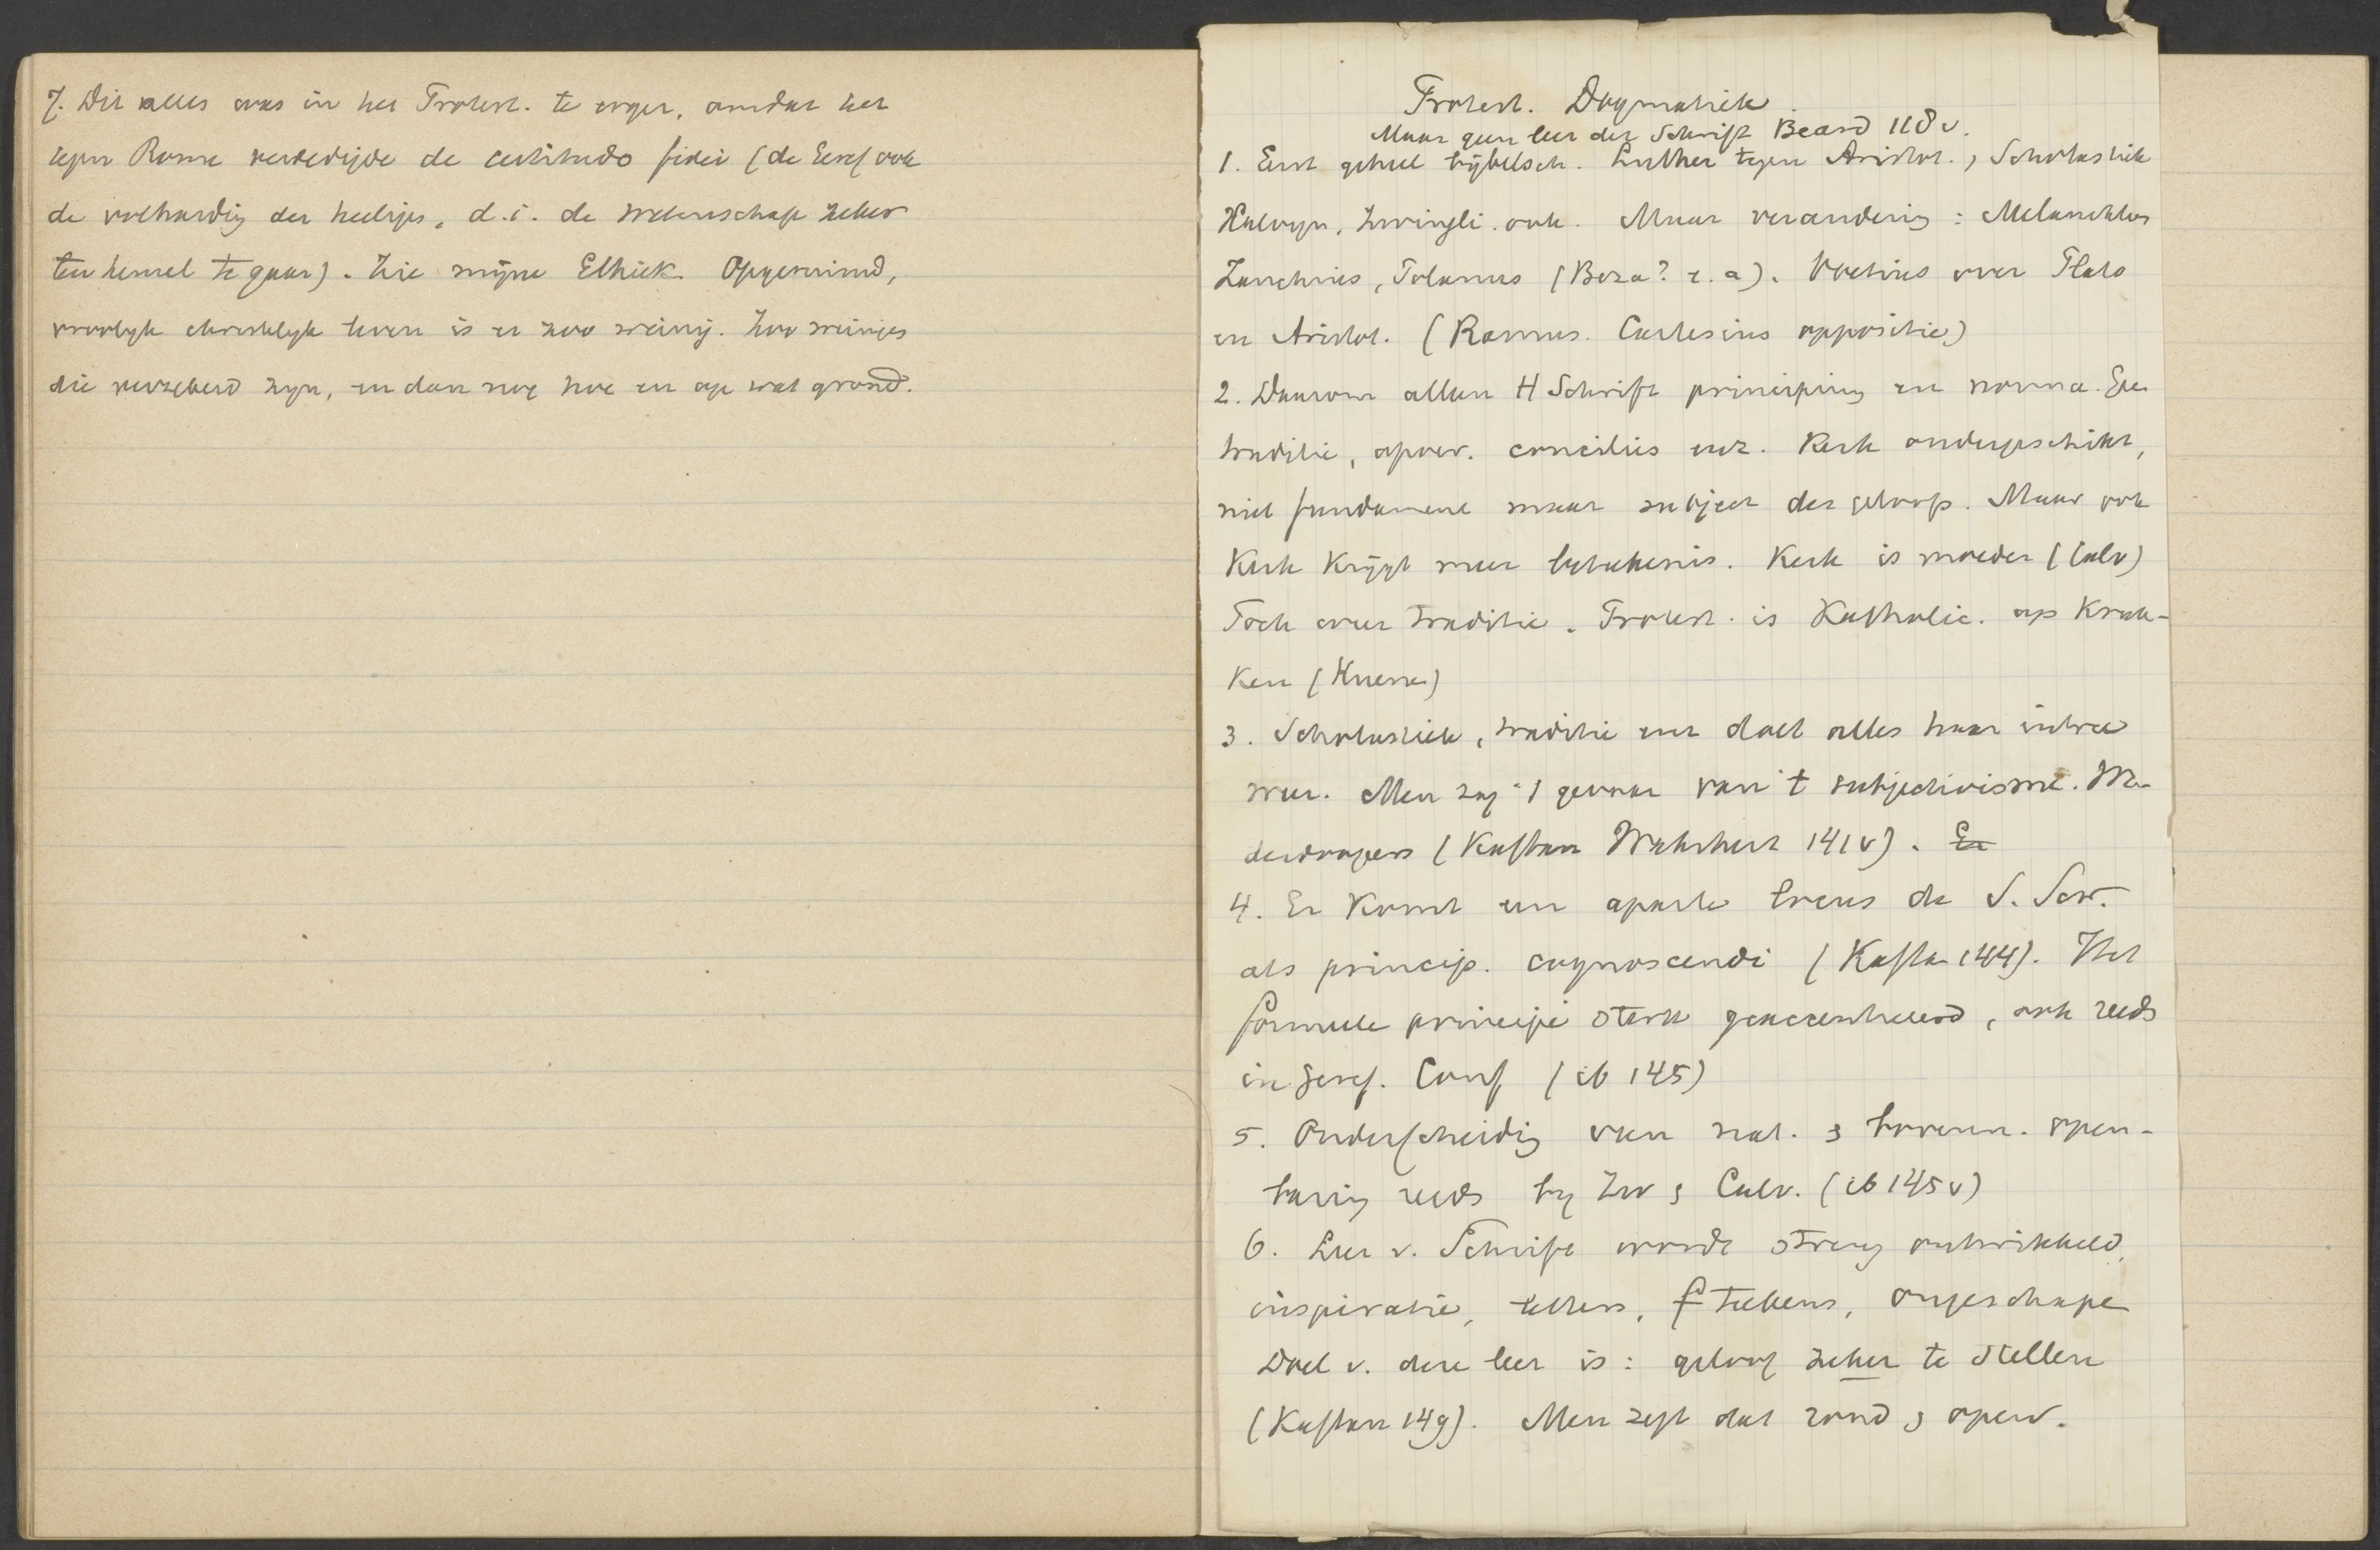 7. Dit alles was in het Protest. te erger, omdat het
tegen Rome verdedigde de certitudo fidei (de Geref ook
de volharding der heiligen, d.i. de wetenschap zeker
ten hemel te gaan). Zie mijne Ethiek. Opgeruimd,
vroolyk christelyk leven is er zoo weinig. Zoo weinigen
die verzekerd zyn, en dan nog hoe en op wat grond.
Protest. Dogmatiek.
Maar geen leer der Schrift Beard 118 v.
1. Eerst geheel bijbelsch. Luther tegen Aristot., Scholastiek
Kalvyn, Zwingli ook. Maar verandering: Melanchton
Zanchius, Polanus (Beza? e.a). Voetius over Plato
en Aristot. (Ramus. Cartesius oppositie)
2. Daarom alleen H Schrift principium en norma. Geen
traditie, apocr. conciliës enz. Kerk ondergeschikt,
niet fundament maar subject des geloofs. Maar ook
Kerk krijgt meer beteekenis. Kerk is moeder (Calv)
Toch weer traditie. Protest. is Katholic. op Kruk-
ken (Kuenen)
3. Scholastiek, traditie enz doet alles haar intree
weer. Men zag 't gevaar van 't subjectivisme. We-
derdoopers (Kaftan Wahrheit 141 v). Er
4. Er komt een aparte locus de S. Scr.
als princip. cognoscendi (Kaftan 144). Het
formeele principe sterk geaccentueerd, ook reeds
in Geref. Conf (ib 145)
5. Onderscheiding van nat. & bovenn. open-
baring reeds by Zw & Calv. (ib 145 v)
6. Leer v. Schrift wordt streng ontwikkeld,
inspiratie, letters, teekens, ongeschapen
Doel v. deze leer is: geloof zeker te stellen
(Kaftan 149). Men zegt dat rond & openl.